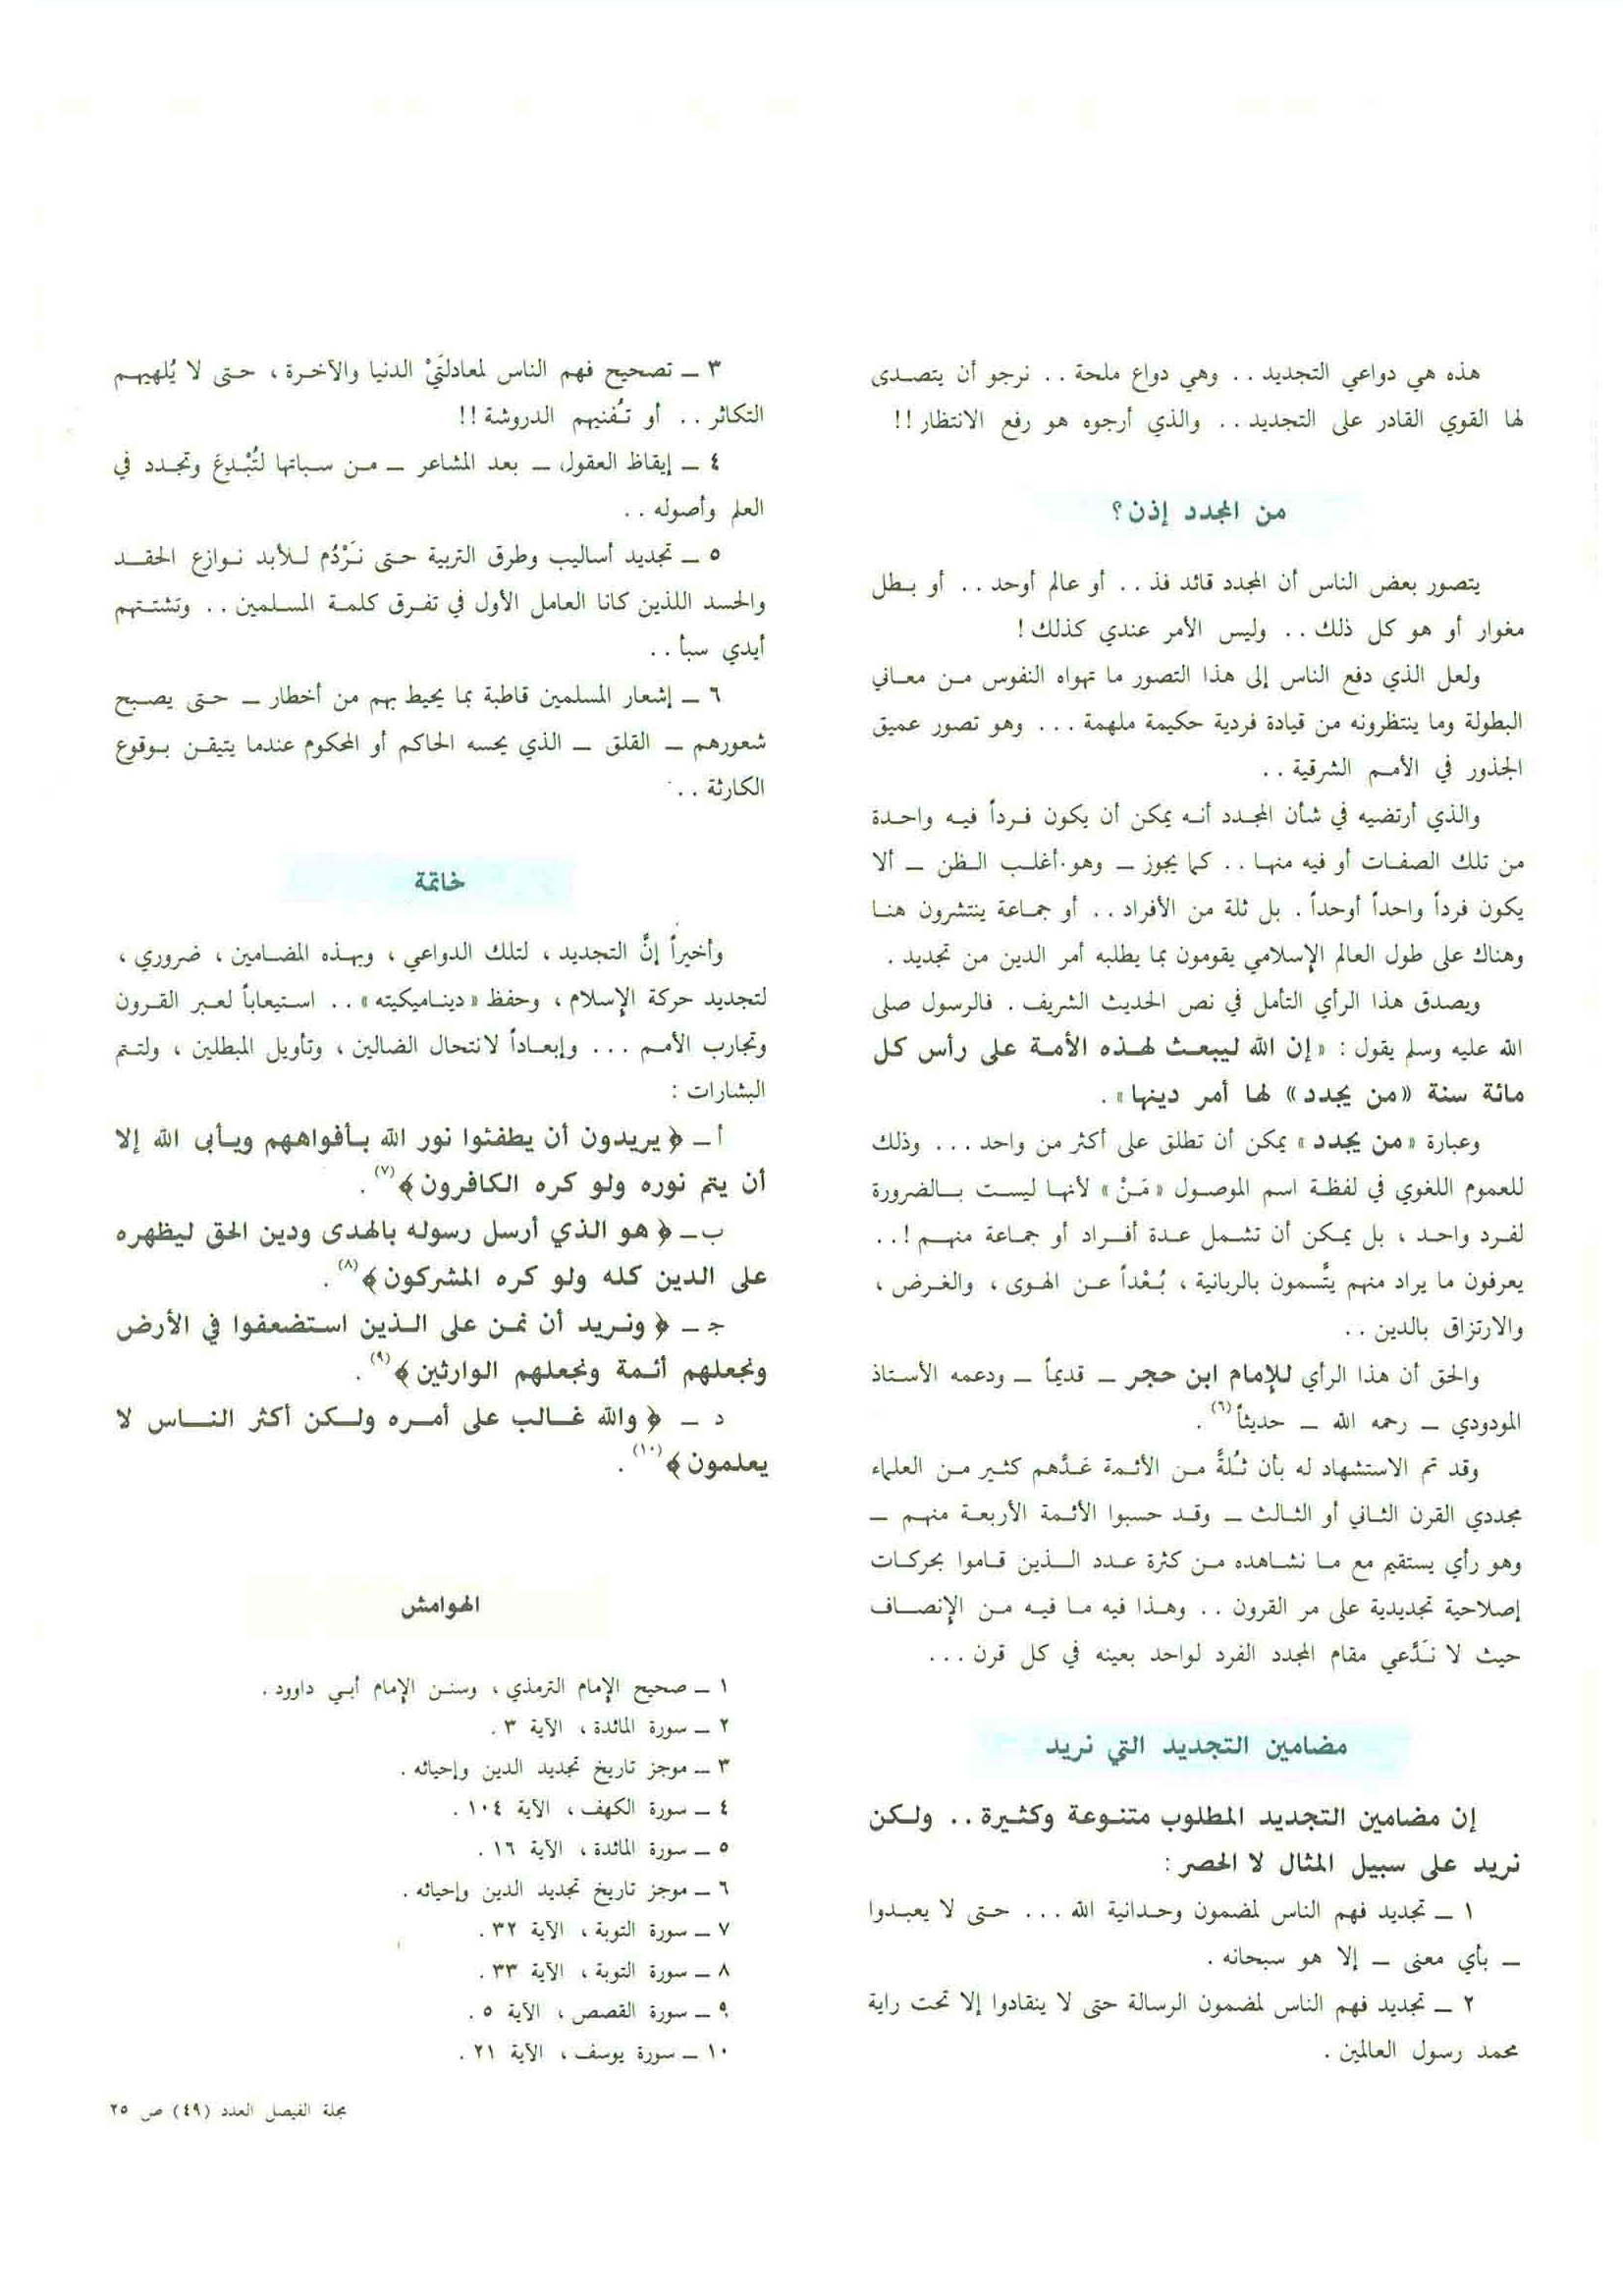 هذه هي دواعي التجديد . . وهي دواع ملحة . . نرجو أن يتصدى
لها القوي القادر على التجديد . . والذي أرجوه هو رفع الانتظار ! !
من المجدد إذن ؟
يتصور بعض الناس أن المجدد قائد فذ . . أو عالم أوحد . . أو بطل
مغوار أو هو كل ذلك . . وليس الأمر عندي كذلك !
ولعل الذي دفع الناس إلى هذا التصور ما تهواه النفوس من معاني
البطولة وما ينتظرونه من قيادة فردية حكيمة ملهمة . . . وهو تصور عميق
الجذور في الأمم الشرقية . .
والذي أرتضيه في شأن المجدد أنه يمكن أن يكون فرداً فيه واحدة
من تلك الصفات أو فيه منها . . كما يجوز ـ وهو أغلب الظن ـ ألا
يكون فرداً واحداً أوحداً . بل ثلة من الأفراد . . أو جماعة ينتشرون هنا
وهناك على طول العالم الإسلامي يقومون بما يطلبه أمر الدين من تجديد .
ويصدق هذا الرأي التأمل في نص الحديث الشريف . فالرسول صلى
الله عليه وسلم يقول : «إن الله ليبعث لهذه الأمة على رأس كل
مائة سنة «من يجدد» لها أمر دينها» .
وعبارة «من يجدد» يمكن أن تطلق على أكثر من واحد . . . وذلك
للعموم اللغوي في لفظة اسم الموصول «مَنْ» لأنها ليست بالضرورة
لفرد واحد ، بل يمكن أن تشمل عدة أفراد أو جماعة منهم ! . .
يعرفون ما يراد منهم يتَّسمون بالربانية ، بُعْداً عن الهوى ، والغرض ،
والارتزاق بالدين . .
والحق أن هذا الرأي للإمام ابن حجر ـ قديماً ـ ودعمه الأستاذ
المودودي ـ رحمه الله ـ حديثاً (٦) .
وقد تم الاستشهاد له بأن ثُلةً من الأئمة عَدَّهم كثير من العلماء
مجددي القرن الثاني أو الثالث ـ وقد حسبوا الأئمة الأربعة منهم ـ
وهو رأي يستقيم مع ما نشاهده من كثرة عدد الذين قاموا بحركات
إصلاحية تجديدية على مر القرون . . وهذا فيه ما فيه من الإنصاف
حيث لا نَدَّعي مقام المجدد الفرد لواحد بعينه في كل قرن . . .
مضامين التجديد التي نريد
إن مضامين التجديد المطلوب متنوعة وكثيرة . . ولكن
نريد على سبيل المثال لا الحصر :
١ ـ تجديد فهم الناس لمضمون وحدانية الله . . . حتى لا يعبدوا
ـ بأي معنى ـ إلا هو سبحانه .
٢ ـ تجديد فهم الناس لمضمون الرسالة حتى لا ينقادوا إلا تحت راية
محمد رسول العالمين .
٣ ـ تصحيح فهم الناس لمعادلتَيْ الدنيا والآخرة ، حتى لا يُلهيهم
التكاثر . . أو تُفنيهم الدروشة ! !
٤ ـ إيقاظ العقول ـ بعد المشاعر ـ من سباتها لتُبْدِعَ وتجدد في
العلم وأصوله . .
٥ ـ تجديد أساليب وطرق التربية حتى نَرْدُم للأبد نوازع الحقد
والحسد اللذين كانا العامل الأول في تفرق كلمة المسلمين . . وتشتتهم
أيدي سبأ . .
٦ ـ إشعار المسلمين قاطبة بما يحيط بهم من أخطار ـ حتى يصبح
شعورهم ـ القلق ـ الذي يحسه الحاكم أو المحكوم عندما يتيقن بوقوع
الكارثة . .
خاتمة
وأخيراً إنَّ التجديد ، لتلك الدواعي ، وبهذه المضامين ، ضروري ،
لتجديد حركة الإسلام ، وحفظ «ديناميكيته» . . استيعاباً لعبر القرون
وتجارب الأمم . . . وإبعاداً لانتحال الضالين ، وتأويل المبطلين ، ولتتم
البشارات :
أ ـ ﴿ يريدون أن يطفئوا نور الله بأفواههم ويأبى الله إلا
أن يتم نوره ولو كره الكافرون ﴾ (٧) .
ب ـ ﴿ هو الذي أرسل رسوله بالهدى ودين الحق ليظهره
على الدين كله ولو كره المشركون ﴾ (٨) .
جـ ـ ﴿ ونريد أن نمن على الذين استضعفوا في الأرض
ونجعلهم أئمة ونجعلهم الوارثين ﴾ (٩) .
د ـ ﴿ والله غالب على أمره ولكن أكثر الناس لا
يعلمون ﴾ (١٠) .
الهوامش
١ ـ صحيح الإمام الترمذي ، وسنن الإمام أبي داوود .
٢ ـ سورة المائدة ، الآية ٣ .
٣ ـ موجز تاريخ تجديد الدين وإحيائه .
٤ ـ سورة الكهف ، الآية ١٠٤ .
٥ ـ سورة المائدة ، الآية ١٦ .
٦ ـ موجز تاريخ تجديد الدين وإحيائه .
٧ ـ سورة التوبة ، الآية ٣٢ .
٨ ـ سورة التوبة ، الآية ٣٣ .
٩ ـ سورة القصص ، الآية ٥ .
١٠ ـ سورة يوسف ، الآية ٢١ .
مجلة الفيصل العدد (٤٩) ص ٢٥